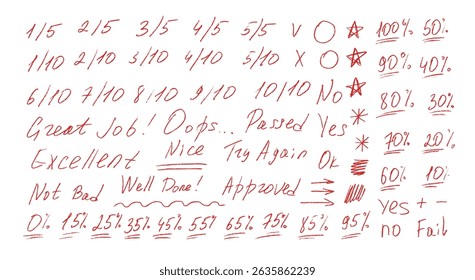 1/5 2/5 3/5 4/5 5/5 V 100% 50%
1/10 2/10 3/10 4/10 5/10 X 90% 40%
6/10 7/10 8/10 9/10 10/10 No 80% 30%
Great Job! Oops... Passed Yes 70% 20%
Excellent Nice Try Again Ok 60% 10%
Not Bad Well Done! Approved yes + -
0% 15% 25% 35% 45% 55% 65% 75% 85% 95% no Fail
shutterstock
IMAGE ID: 2635862239
www.shutterstock.com